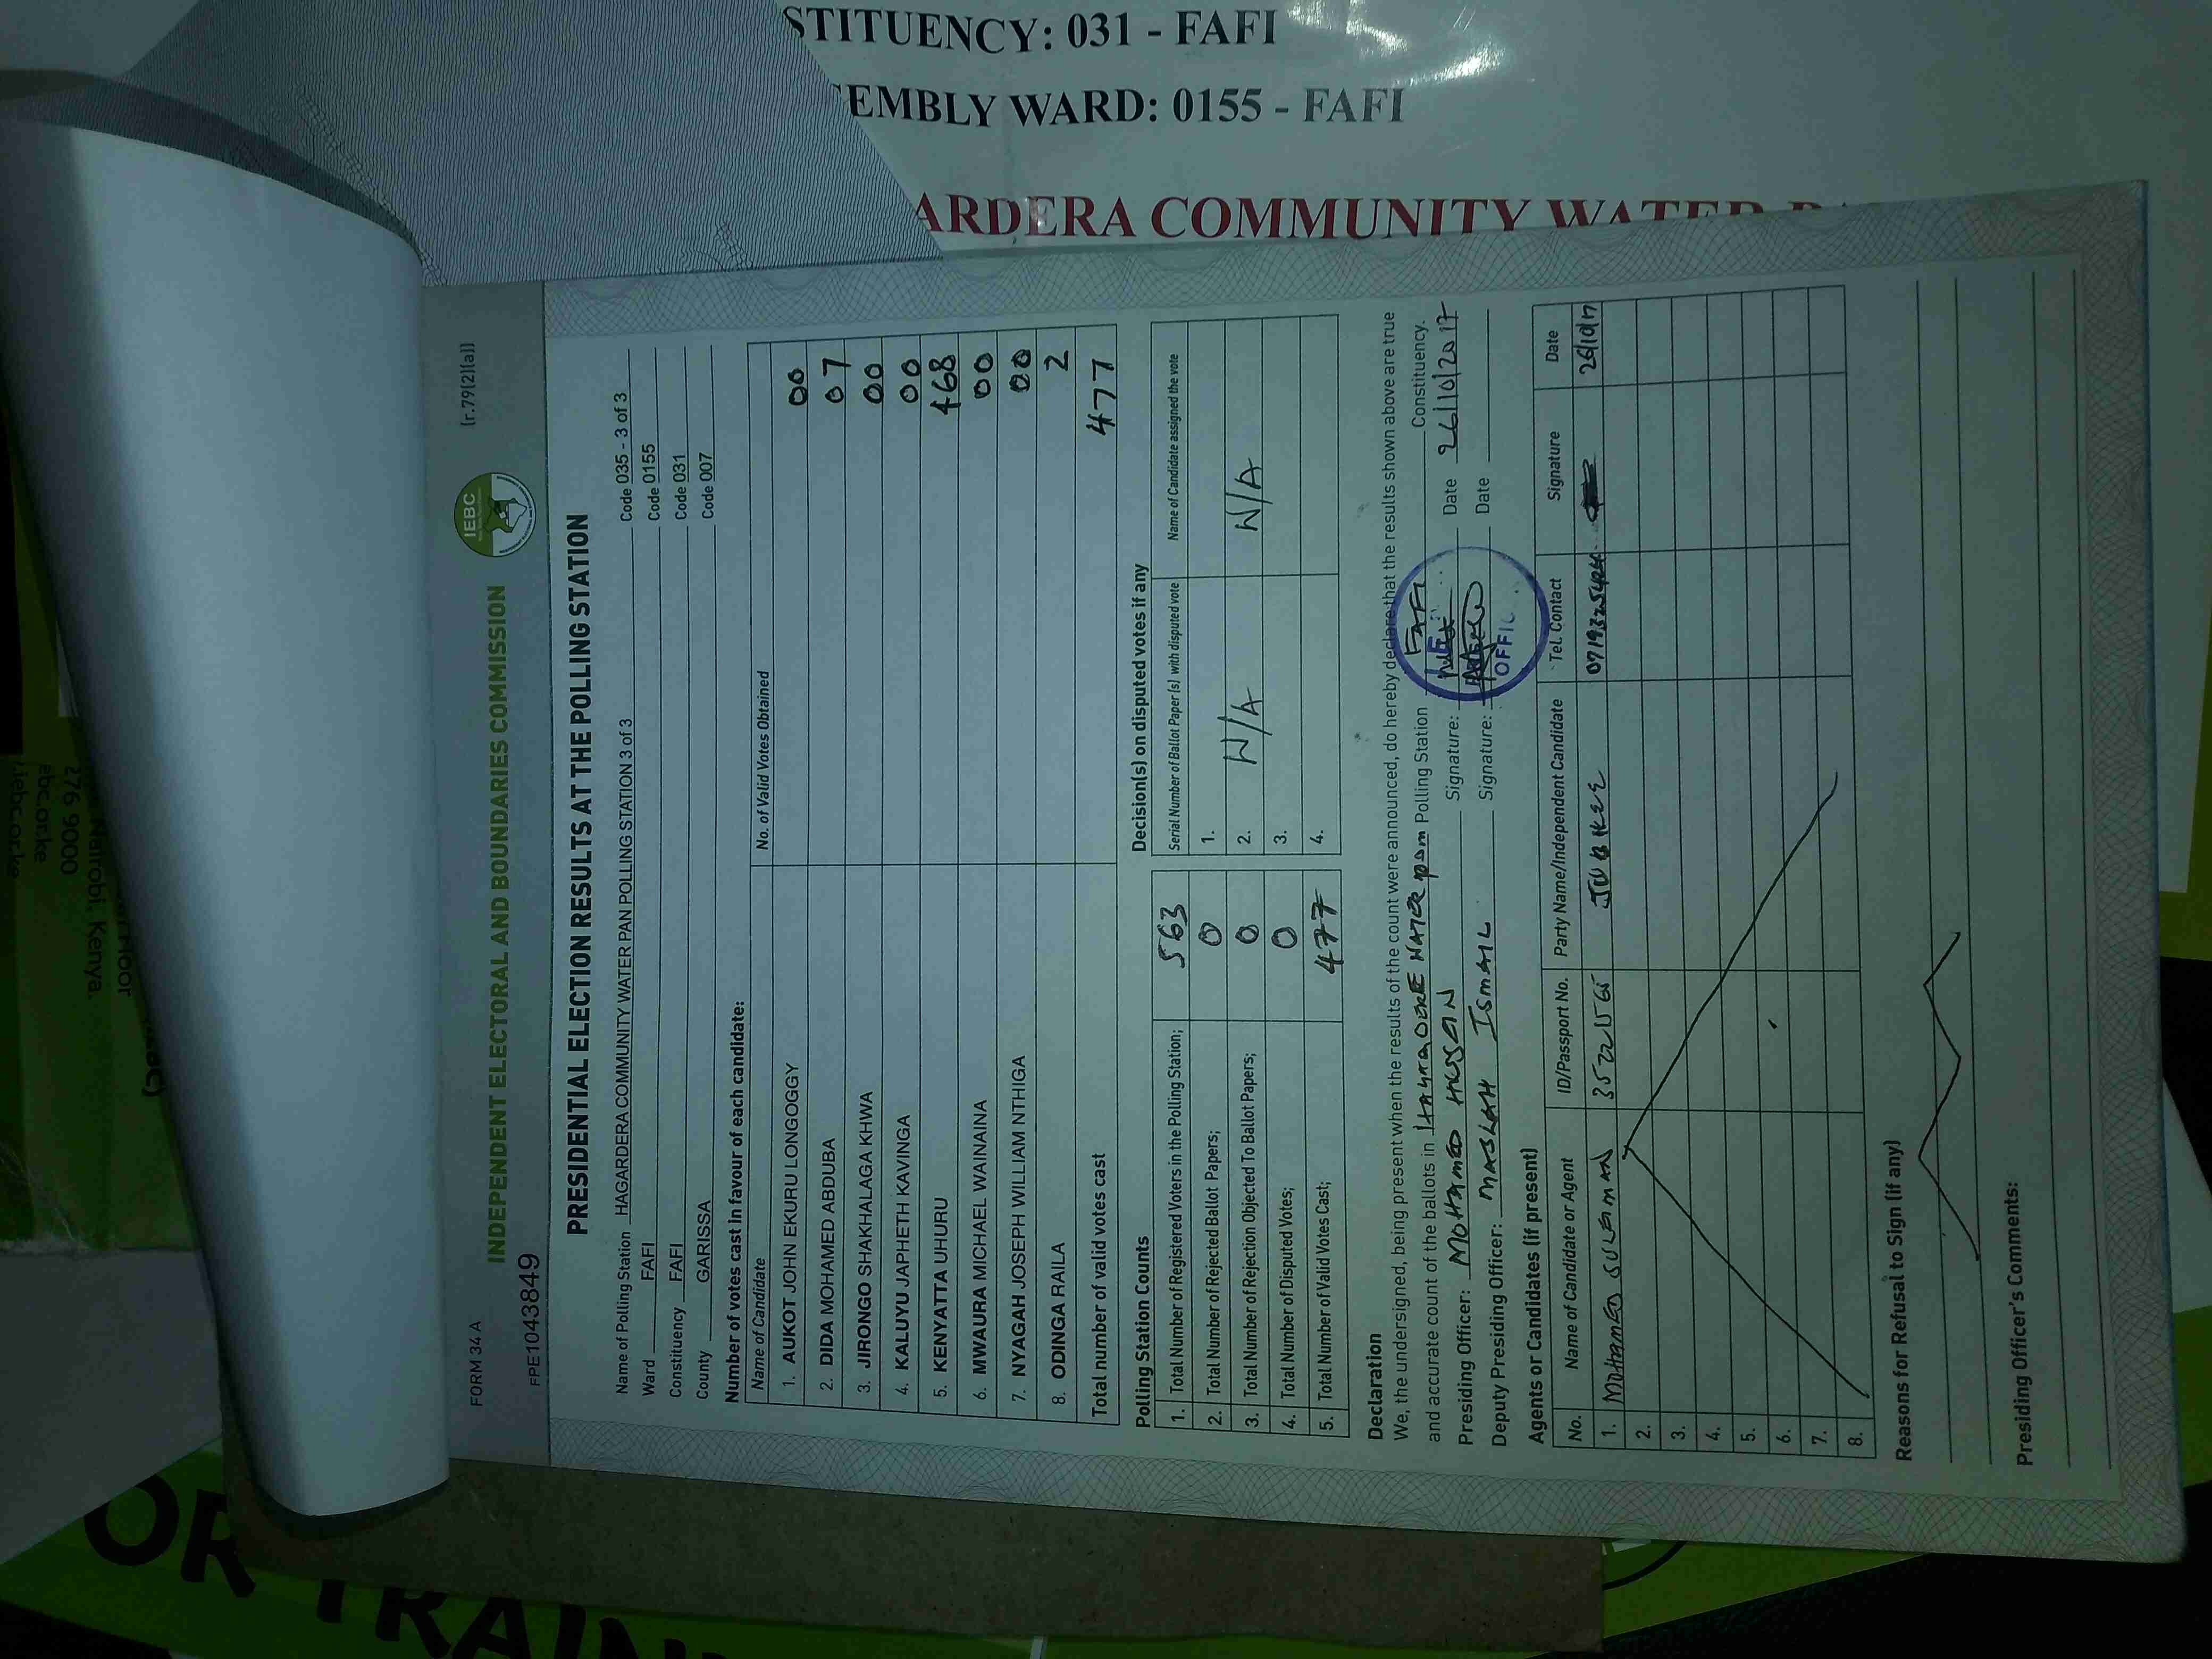 STITUENCY: 031 - FAFI
EMBLY WARD: 0155 - FAFI
ARDERA COMMUNITY WATER
FORM 34 A
(r.79(2)(a))
INDEPENDENT ELECTORAL AND BOUNDARIES COMMISSION
IEBC
FPE1043849
PRESIDENTIAL ELECTION RESULTS AT THE POLLING STATION
Name of Polling Station HAGARDERA COMMUNITY WATER PAN POLLING STATION 3 of 3 Code 035 - 3 of 3
Ward FAFI Code 0155
Constituency FAFI Code 031
County GARISSA Code 007
Number of votes cast in favour of each candidate:
Name of Candidate No. of Valid Votes Obtained
1. AUKOT JOHN EKURU LONGOGGY 00
2. DIDA MOHAMED ABDUBA 07
3. JIRONGO SHAKHALAGA KHWA 00
4. KALUYU JAPHETH KAVINGA 00
5. KENYATTA UHURU 468
6. MWAURA MICHAEL WAINAINA 00
7. NYAGAH JOSEPH WILLIAM NTHIGA 00
8. ODINGA RAILA 2
Total number of valid votes cast 477
Polling Station Counts
1. Total Number of Registered Voters in the Polling Station; 563
2. Total Number of Rejected Ballot Papers; 0
3. Total Number of Rejection Objected To Ballot Papers; 0
4. Total Number of Disputed Votes; 0
5. Total Number of Valid Votes Cast; 477
Decision(s) on disputed votes if any
Serial Number of Ballot Paper(s) with disputed vote Name of Candidate assigned the vote
1.
2. N/A N/A
3.
4.
Declaration
We, the undersigned, being present when the results of the count were announced, do hereby declare that the results shown above are true
and accurate count of the ballots in WATER Pan Polling Station FAFI Constituency.
Presiding Officer: MOHAMED HUSSEIN Signature: Date 26/10/2017
Deputy Presiding Officer: MASLAH ISMAIL Signature: Date
OFFIC
Agents or Candidates (if present)
No. Name of Candidate or Agent ID/Passport No. Party Name/Independent Candidate Tel. Contact Signature Date
1. MOHAMED SULEIMAN JUBILEE 26/10/17
2.
3.
4.
5.
6.
7.
8.
Reasons for Refusal to Sign (if any)
Presiding Officer's Comments:
OR TRAIN
Floor
Nairobi, Kenya.
276 9000
ebc.or.ke
iebc.or.ke